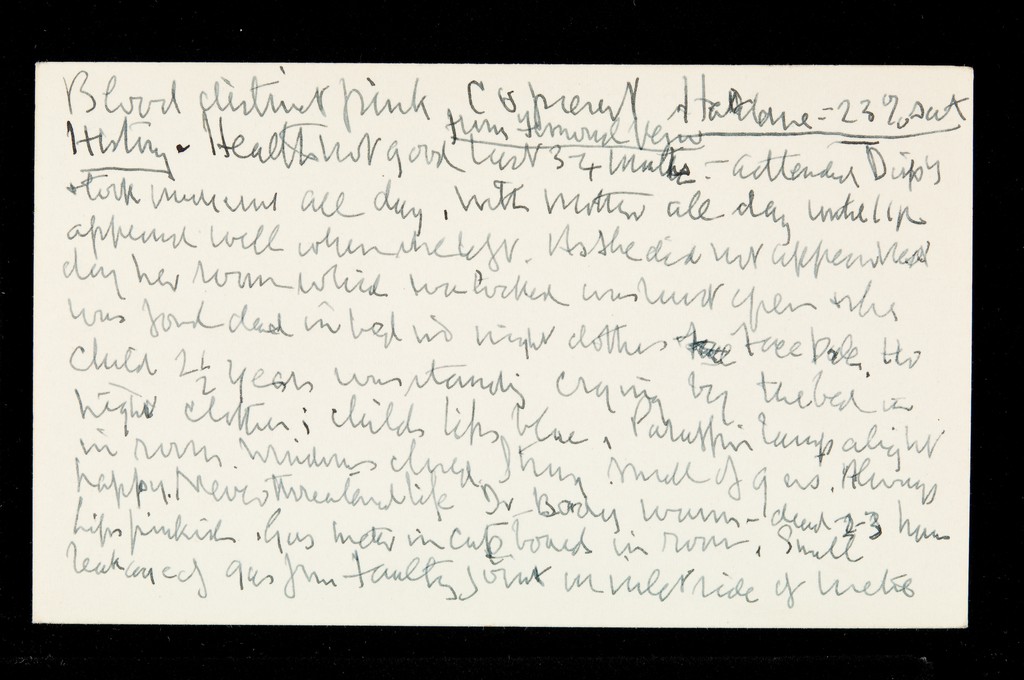 Blood distinct pink CO present Haldane = 23% sat
from Femoral Vein
History. Health not good last 3-4 months - attended Dispy
+ took medicine all day, with mother all day until 11 pm
appeared well when she left. As she did not appear next
day her room which was locked was burst open + she
was found dead in bed in night clothes face pale. Her
child 2 1/2 years was standing crying by the bed in
night clothes; childs lips blue. Paraffin lamp alight
in room. Windows closed Strong smell of gas. Always
happy. Never threatened life Dr - Body warm - dead 2-3 hours
Lips pinkish. Gas meter in cupboard in room. Small
leakage of gas from faulty joint in inlet side of meter